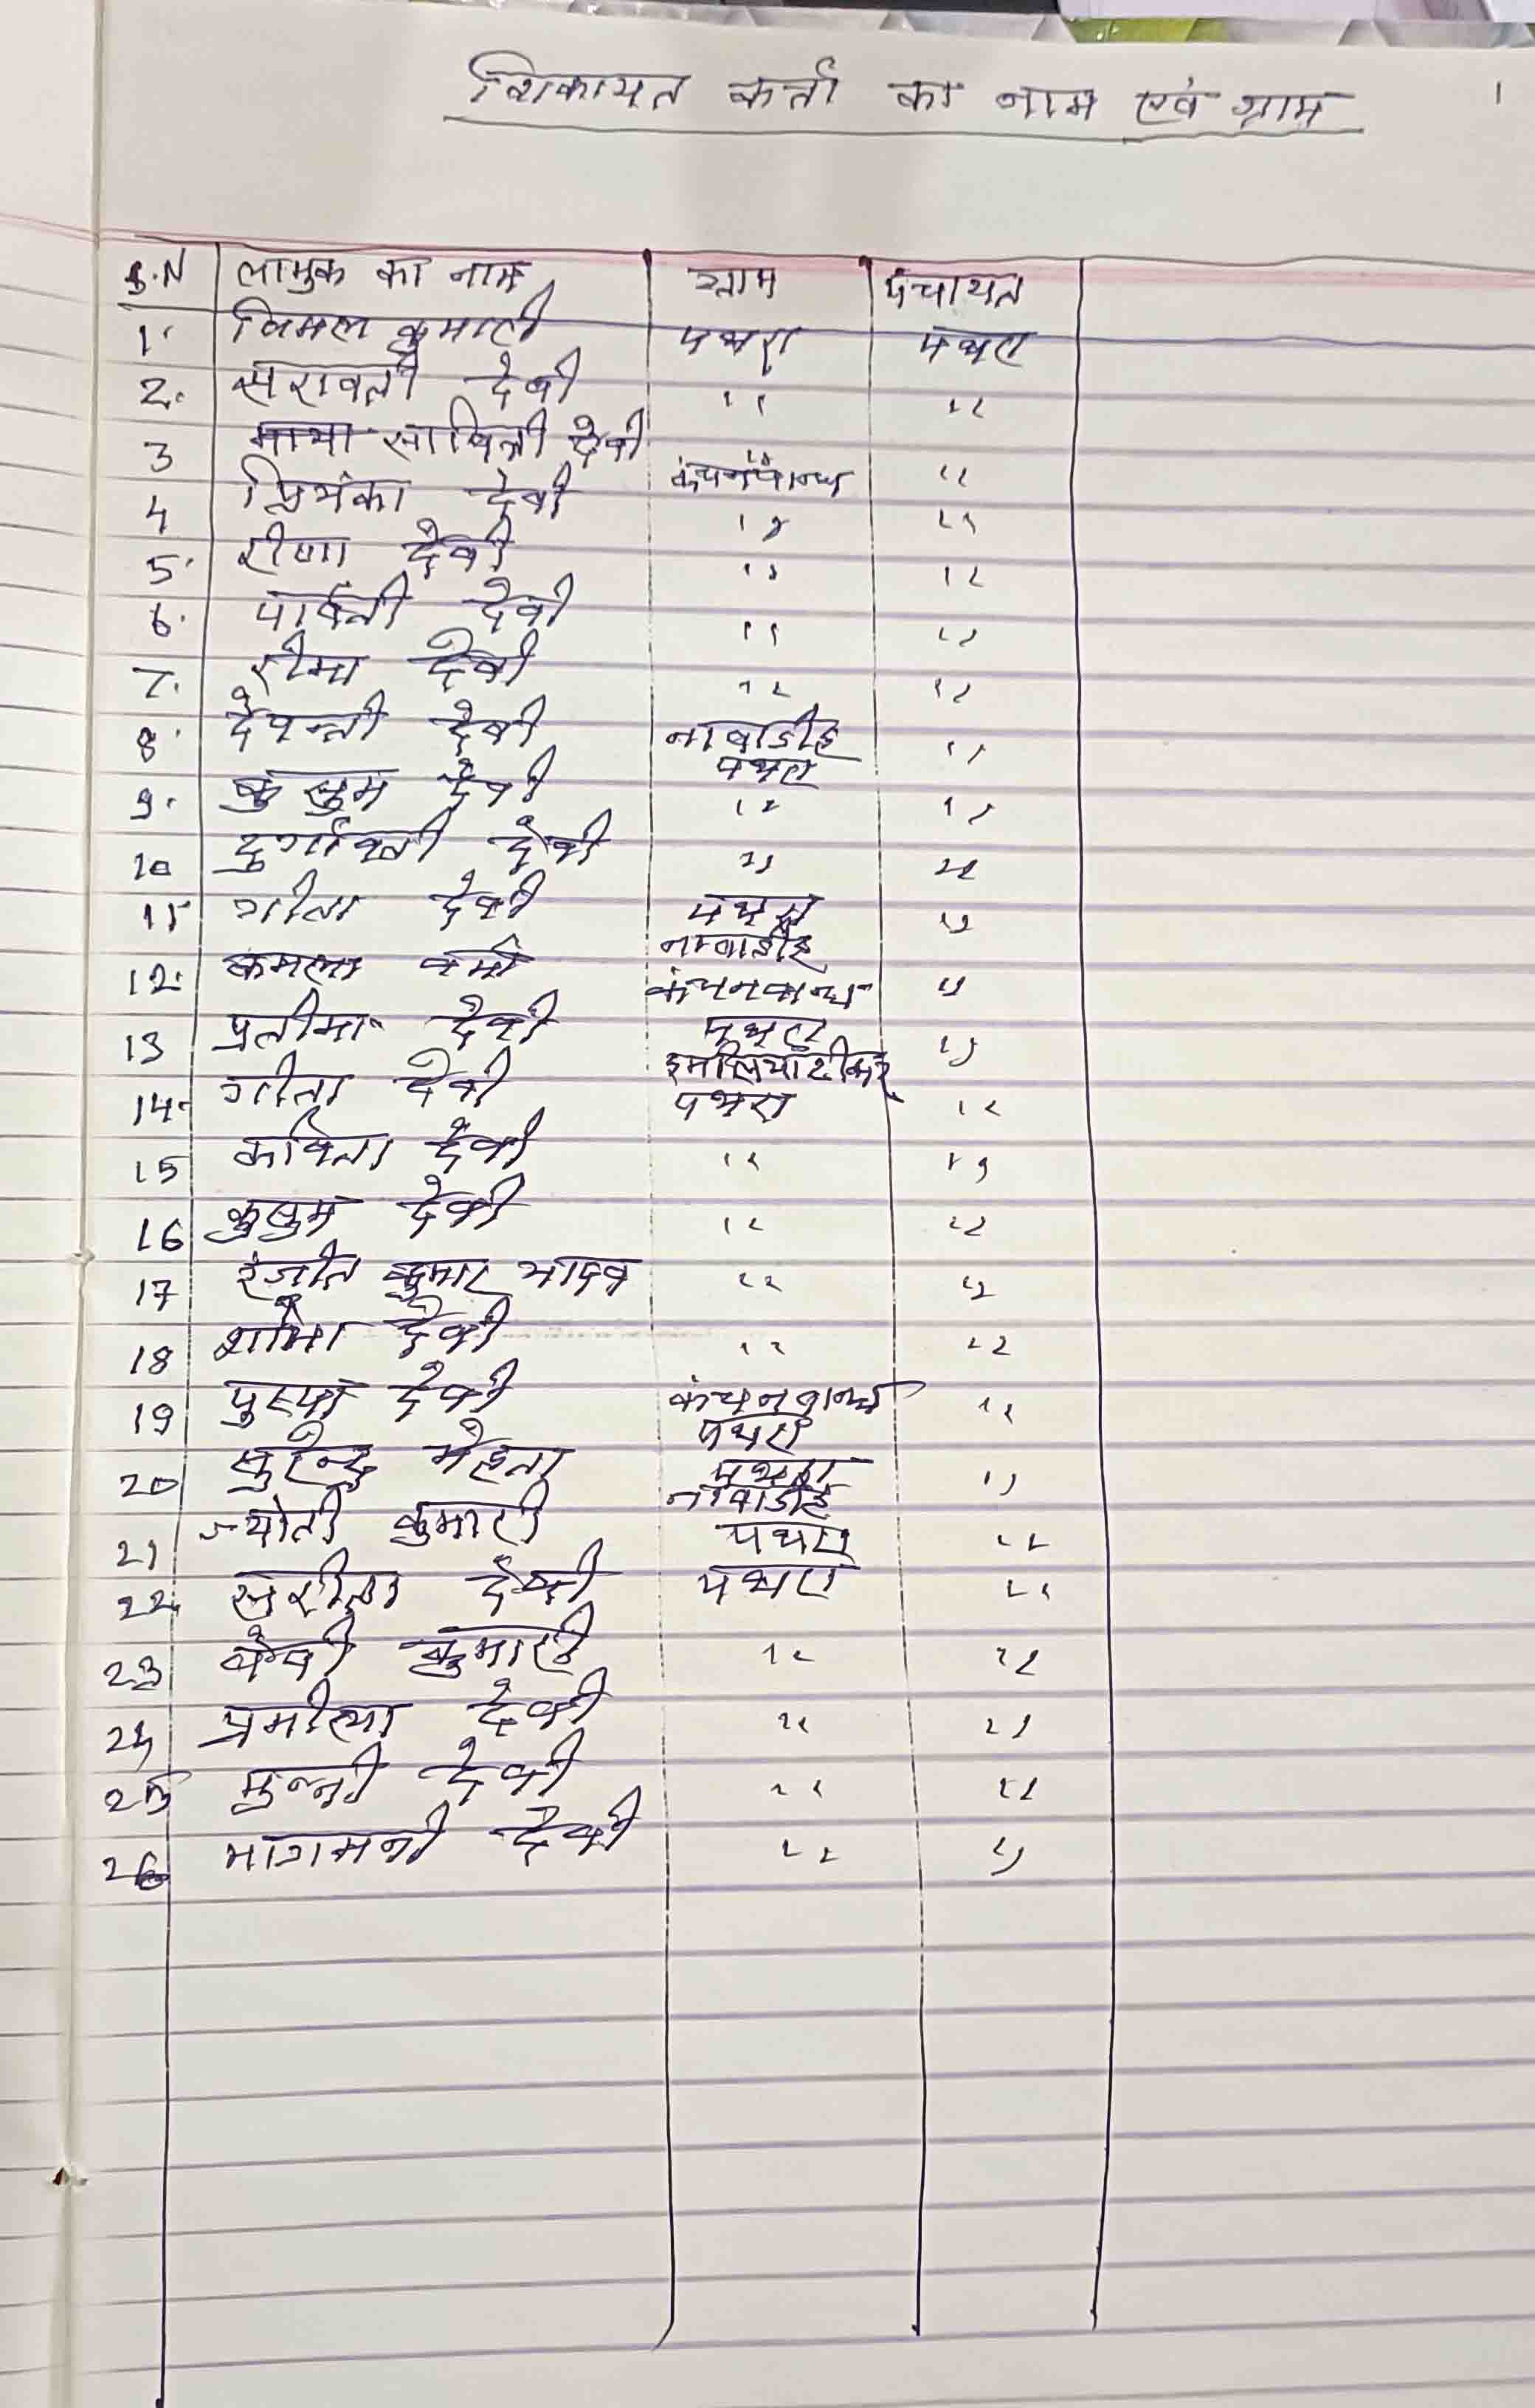 शिकायत कर्ता का नाम एवं ग्राम 1
S.N लाभुक का नाम ग्राम पंचायत
1. विमल कुमारी पथरा पथरा
2. सरावती देवी " "
3 माया सावित्री देवी " "
4 प्रियंका देवी " "
5. रीणा देवी " "
6. पार्वती देवी " "
7. रीमा देवी " "
8. देवन्ती देवी नावाडीह पथरा "
9. कुसुम देवी " "
10 दुर्गावती देवी " "
11 गीता देवी पथरा नावाडीह "
12. कमला वर्मा कंचनबान्ध पथरा "
13 प्रतीमा देवी "
14. गीता देवी पथरा "
15 कविता देवी " "
16 कुसुम देवी " "
17 रंजीत कुमार यादव " "
18 शोभा देवी " "
19 पुष्पा देवी कंचनबान्ध पथरा "
20 सुरेन्द्र मेहता पथरा "
21 ज्योती कुमारी नावाडीह पथरा "
22 सुनीता देवी पथरा "
23 बेबी कुमारी " "
24 देवी " "
25 मुन्नी देवी " "
26 भागमनी देवी " "